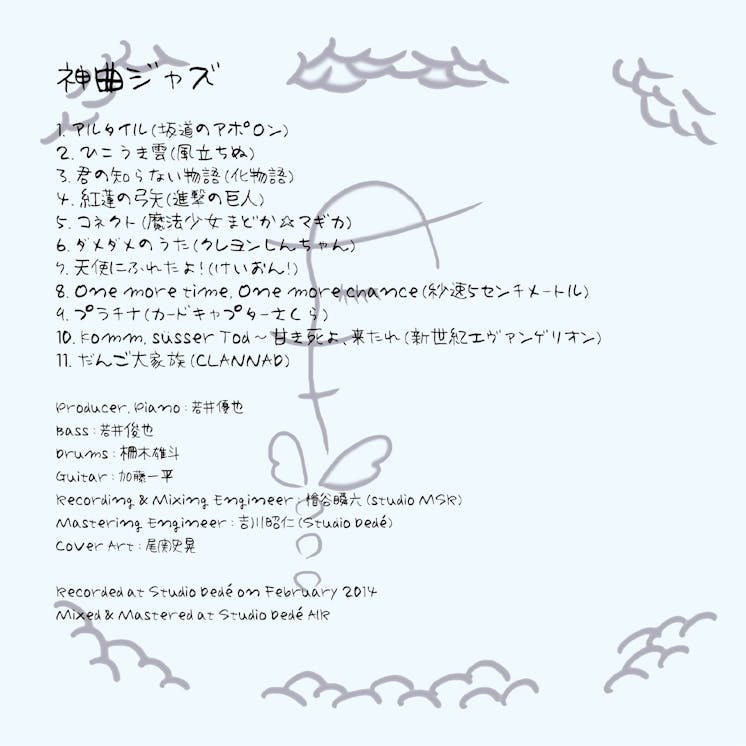 神曲ジャズ
1. アルタイル (坂道のアポロン)
2. ひこうき雲 (風立ちぬ)
3. 君の知らない物語 (化物語)
4. 紅蓮の弓矢 (進撃の巨人)
5. コネクト (魔法少女まどか☆マギカ)
6. ダメダメのうた (クレヨンしんちゃん)
7. 天使にふれたよ! (けいおん!)
8. One more time, One more chance (秒速5センチメートル)
9. プラチナ (カードキャプターさくら)
10. Komm, süsser Tod ~ 甘き死よ、来たれ (新世紀エヴァンゲリオン)
11. だんご大家族 (CLANNAD)
Producer, Piano : 若井優也
Bass : 若井俊也
Drums : 柵木雄斗
Guitar : 加藤一平
Recording & Mixing Engineer : 檜谷瞬六 (studio MSR)
Mastering Engineer : 吉川昭仁 (Studio Dedé)
Cover Art : 尾関史晃
Recorded at Studio Dedé on February 2014
Mixed & Mastered at Studio Dedé AIR